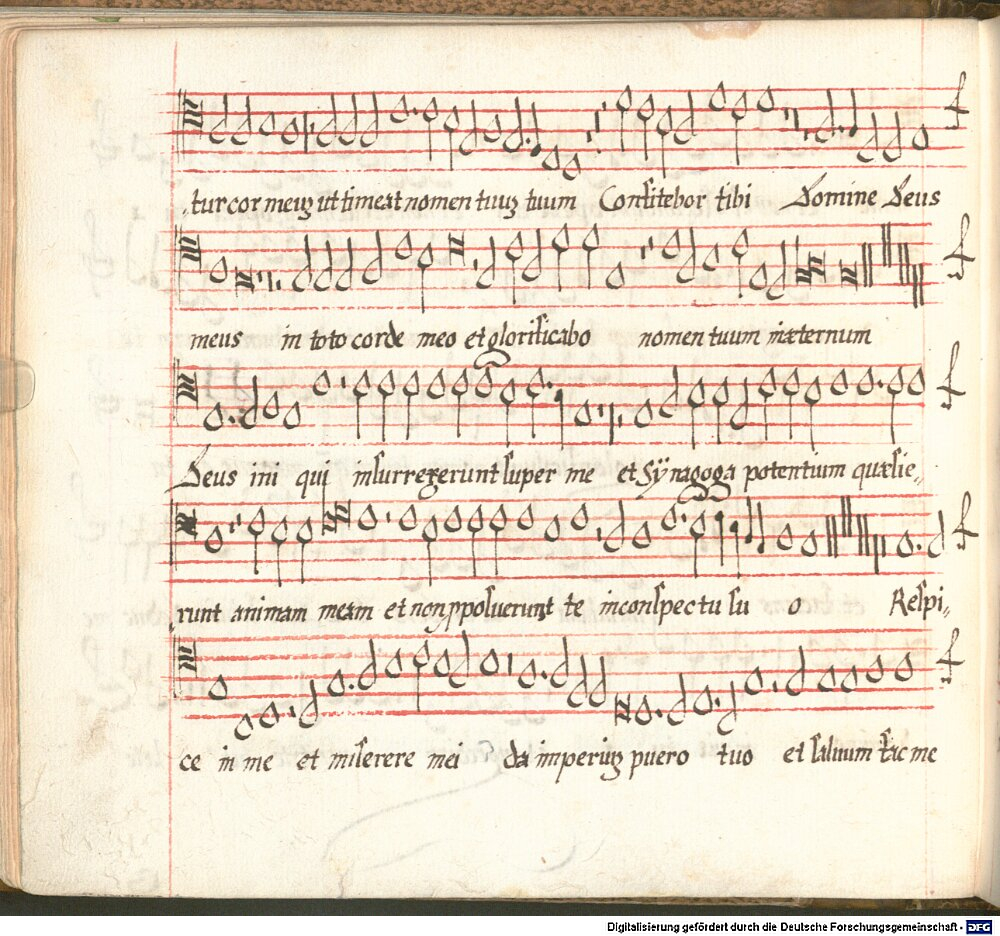 tur cor meuʒ ut timeat nomen tuuʒ tuum Confitebor tibi Domine Deus
meus in toto corde meo et glorificabo nomen tuum inæternum
Deus ini qui insurrexerunt super me et Sÿnagoga potentium quæsie,,
runt animam meam et non ꝓposuerunt te inconspectu su o Respi,,
ce in me et miserere mei da imperiuʒ puero tuo et salvum fac me
Digitalisierung gefördert durch die Deutsche Forschungsgemeinschaft - DFG